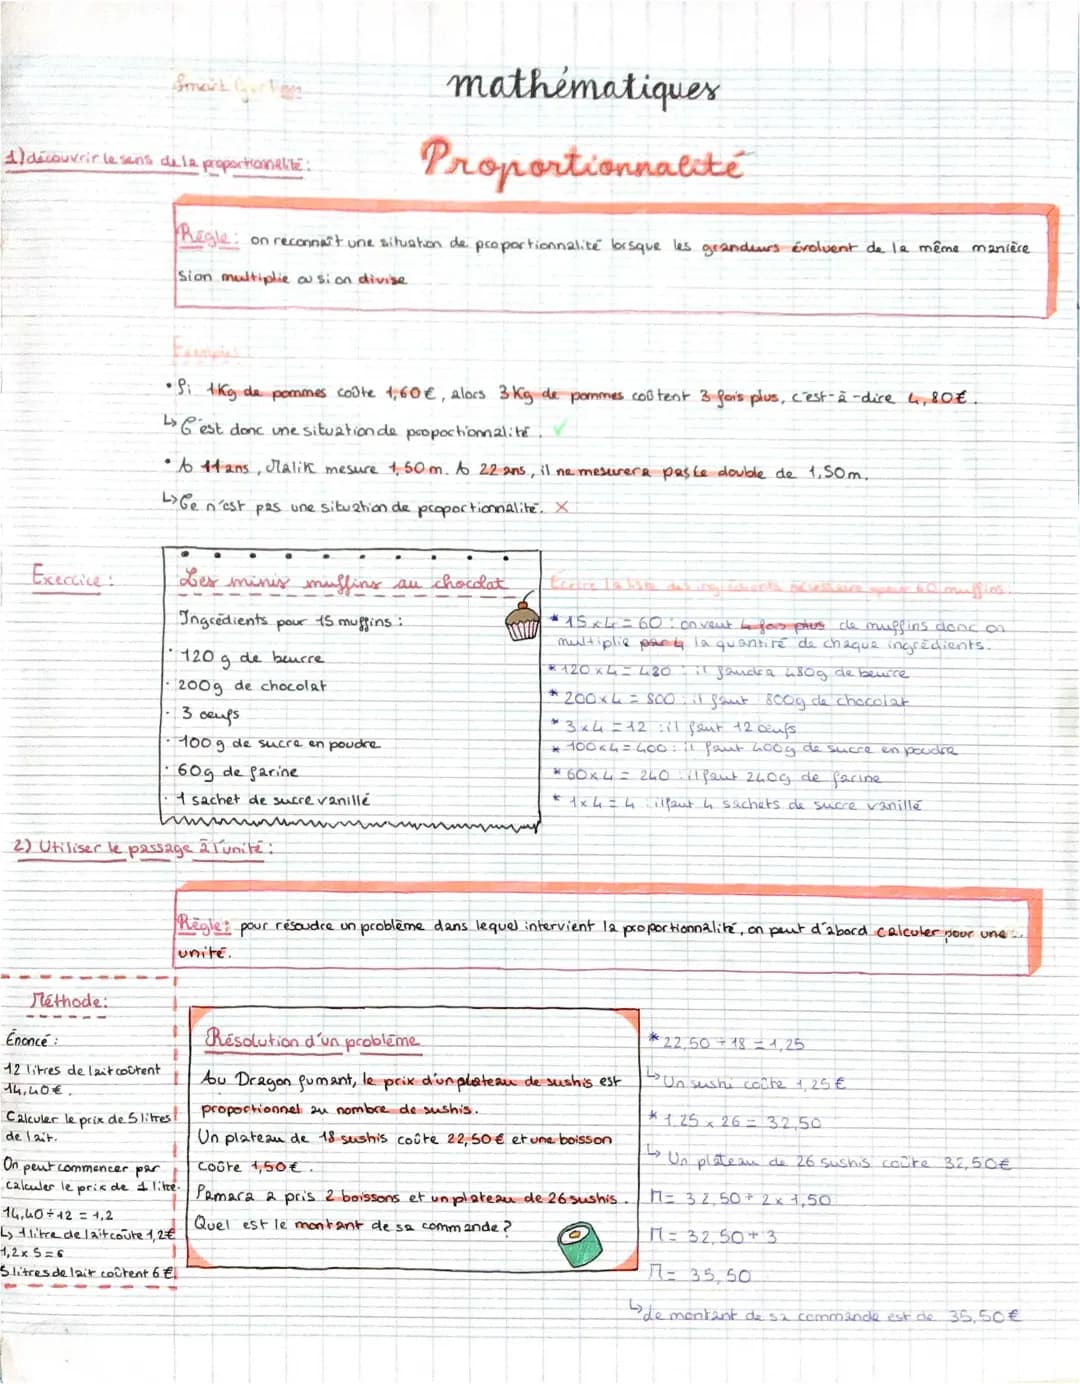 mathématiques
Proportionnalité
1) découvrir le sens de la proportionnalité :
Règle : on reconnaît une situation de proportionnalité lorsque les grandeurs évoluent de la même manière
si on multiplie ou si on divise
Exemples :
• Si 1Kg de pommes coûte 1,60€, alors 3Kg de pommes coûtent 3 fois plus, c'est-à-dire 4,80€.
↳ C'est donc une situation de proportionnalité. ✓
• A 11 ans, Malik mesure 1,50m. A 22 ans, il ne mesurera pas le double de 1,50m.
↳ Ce n'est pas une situation de proportionnalité. X
Exercice :
Les minis muffins au chocolat
Ingrédients pour 15 muffins :
· 120 g de beurre
· 200g de chocolat
· 3 oeufs
· 100 g de sucre en poudre
· 60g de farine
· 1 sachet de sucre vanillé
Ecrire la liste des ingrédients nécessaire pour 60 muffins.
* 15 x 4 = 60 : on veut 4 fois plus de muffins donc on
multiplie par 4 la quantité de chaque ingrédients.
* 120 x 4 = 480 : il faudra 480g de beurre
* 200 x 4 = 800 : il faut 800g de chocolat
* 3 x 4 = 12 : il faut 12 oeufs
* 100 x 4 = 400 : il faut 400g de sucre en poudre
* 60 x 4 = 240 : il faut 240g de farine
* 1 x 4 = 4 : il faut 4 sachets de sucre vanillé
2) Utiliser le passage à l'unité :
Règle : pour résoudre un problème dans lequel intervient la proportionnalité, on peut d'abord calculer pour une
unité.
Méthode :
Énoncé :
12 litres de lait coûtent
14,40€.
Calculer le prix de 5 litres
de lait.
On peut commencer par
calculer le prix de 1 litre.
14,40 ÷ 12 = 1,2
↳ 1 litre de lait coûte 1,2€
1,2 x 5 = 6
5 litres de lait coûtent 6€.
Résolution d'un problème
Au Dragon fumant, le prix d'un plateau de sushis est
proportionnel au nombre de sushis.
Un plateau de 18 sushis coûte 22,50€ et une boisson
coûte 1,50€.
Pamara a pris 2 boissons et un plateau de 26 sushis.
Quel est le montant de sa commande ?
* 22,50 ÷ 18 = 1,25
↳ Un sushi coûte 1,25€
* 1,25 x 26 = 32,50
↳ Un plateau de 26 sushis coûte 32,50€
M = 32,50 + 2 x 1,50
M = 32,50 + 3
M = 35,50
↳ Le montant de sa commande est de 35,50€